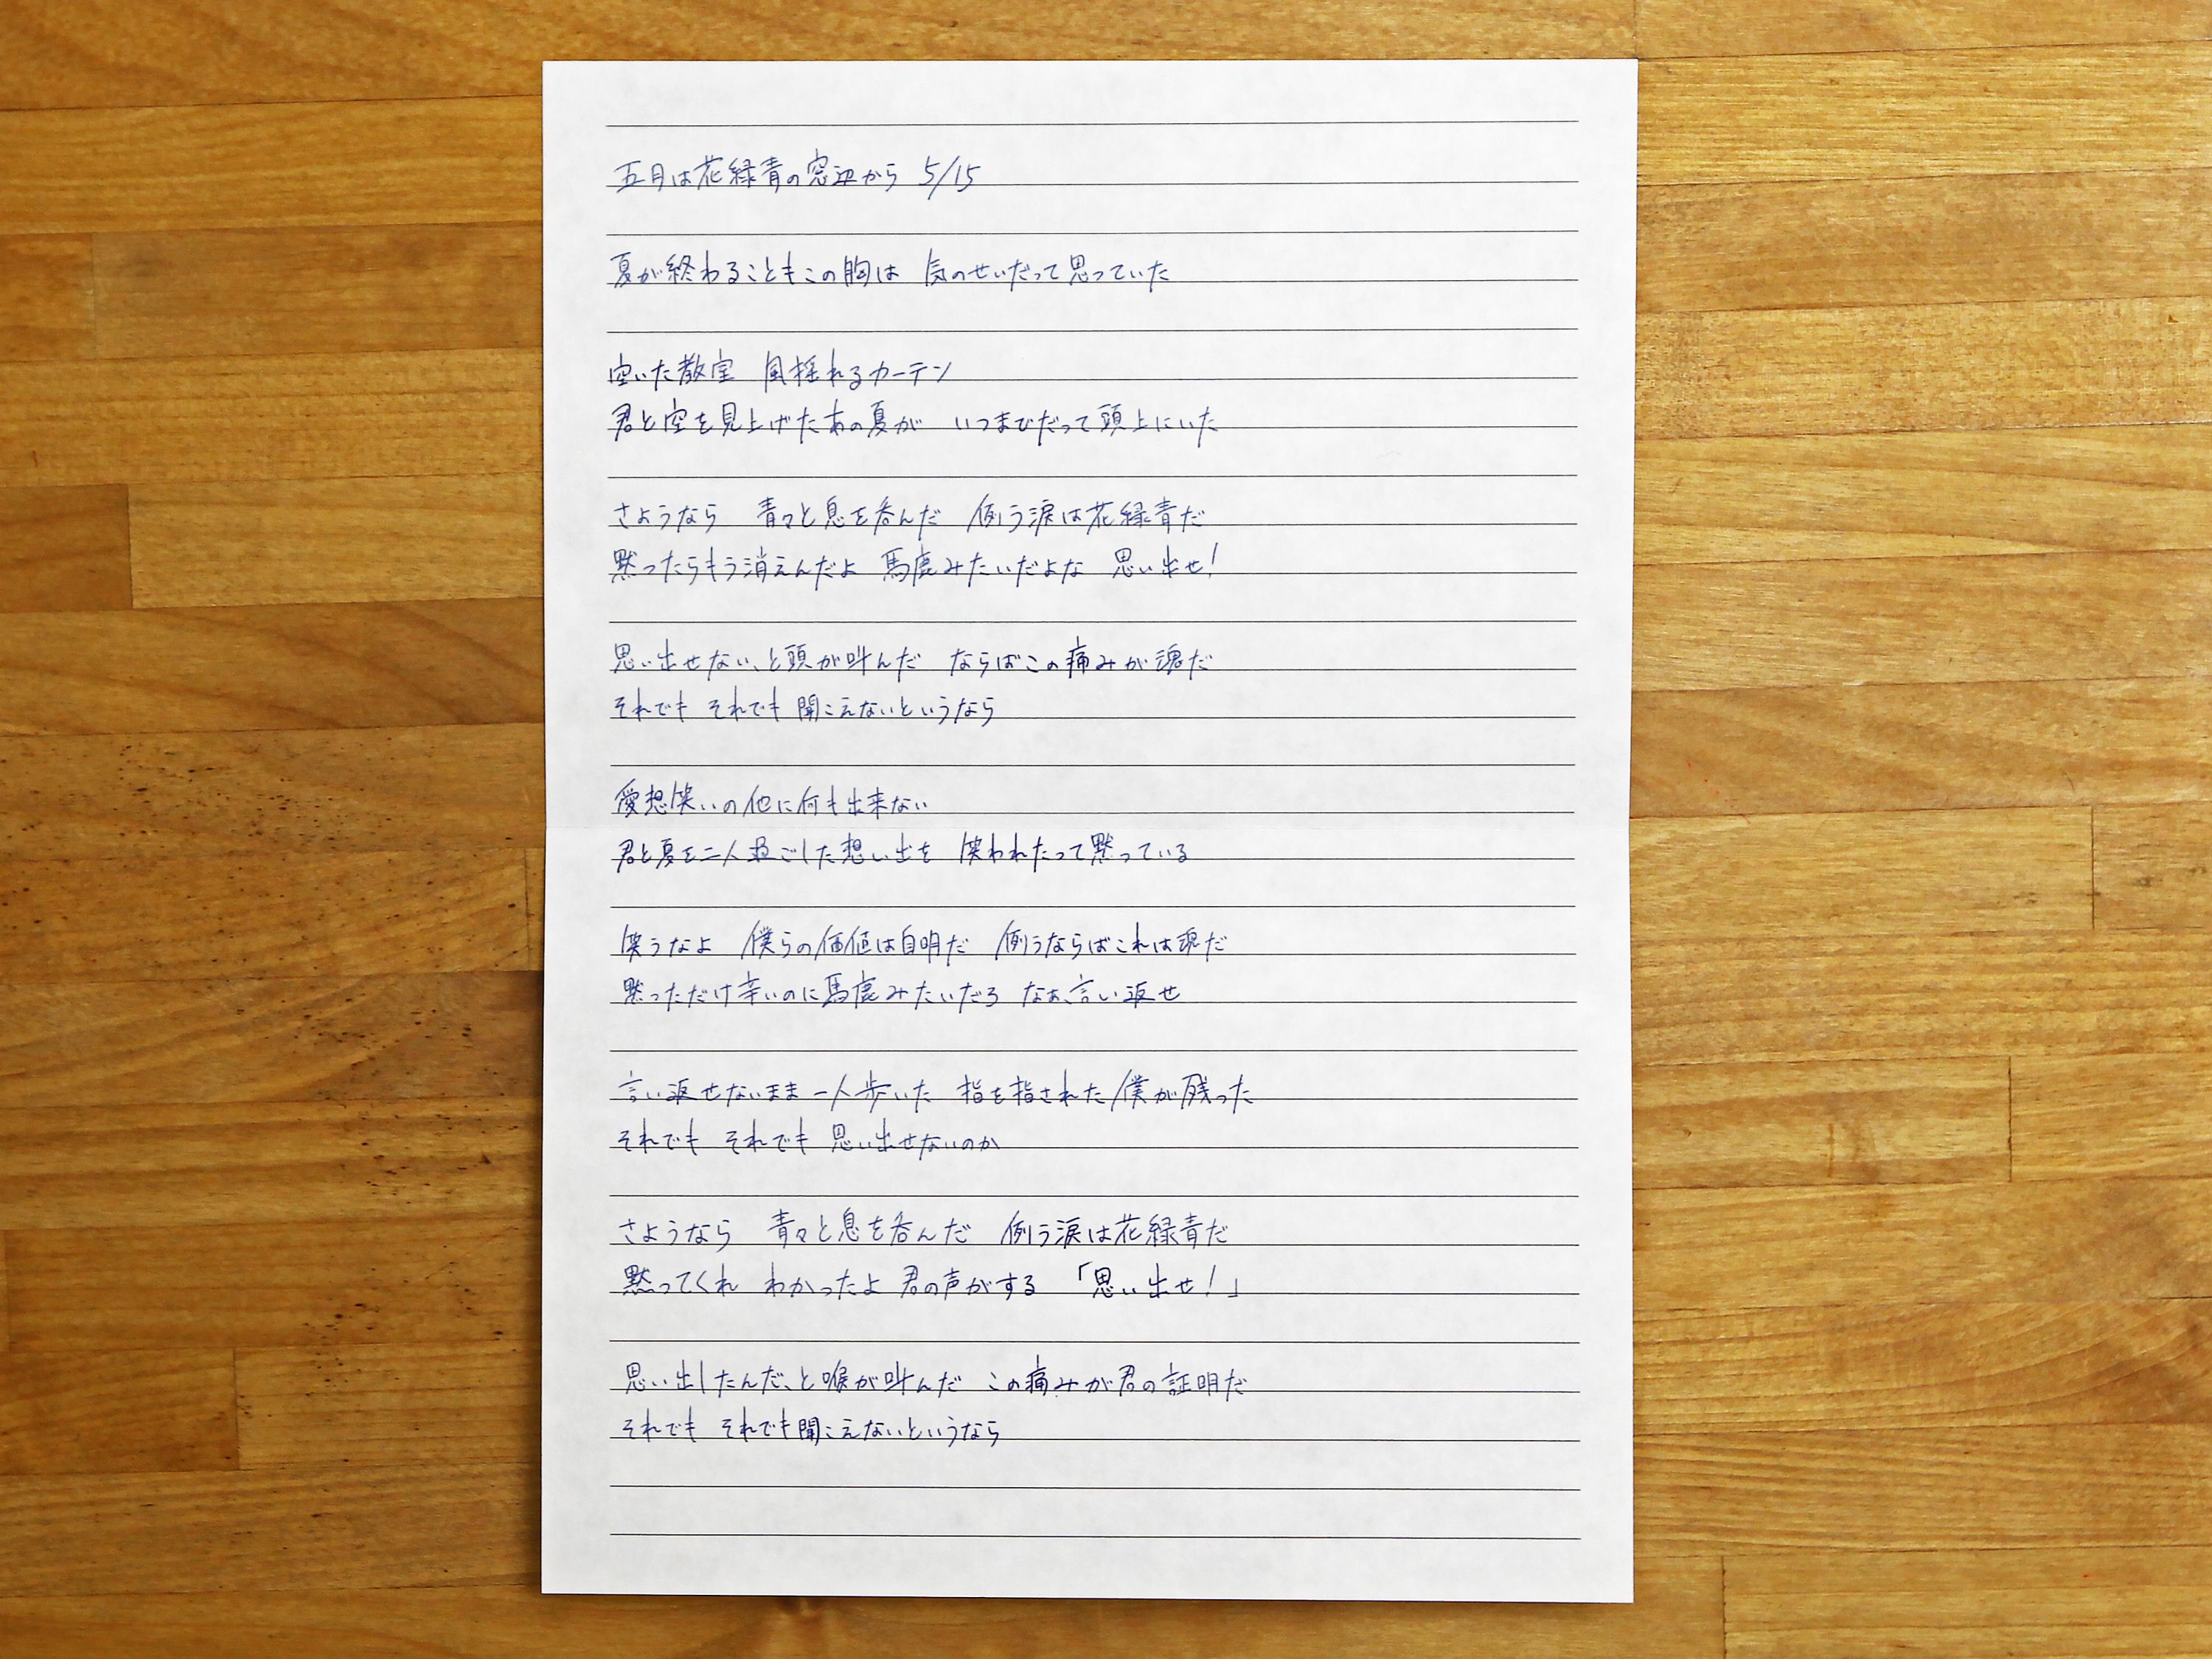 五月は花緑青の窓辺から 5/15
夏が終わることもこの胸は 気のせいだって思っていた
空いた教室 風揺れるカーテン
君と空を見上げたあの夏が いつまでだって頭上にいた
さようなら 青々と息を呑んだ 例う涙は花緑青だ
黙ったらもう消えんだよ 馬鹿みたいだよな 思い出せ!
思い出せない、と頭が叫んだ ならばこの痛みが魂だ
それでも それでも 聞こえないというなら
愛想笑いの他に何も出来ない
君と夏を二人過ごした想い出を 笑われたって黙っている
笑うなよ 僕らの価値は自明だ 例うならばこれは魂だ
黙っただけ辛いのに馬鹿みたいだろ なぁ、言い返せ
言い返せないまま一人歩いた 指を指された僕が残った
それでも それでも 思い出せないのか
さようなら 青々と息を呑んだ 例う涙は花緑青だ
黙ってくれ わかったよ 君の声がする 「思い出せ!」
思い出したんだ、と喉が叫んだ この痛みが君の証明だ
それでも それでも聞こえないというなら